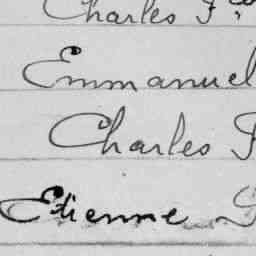 Charles F
Emmanuel
Charles F
Etienne